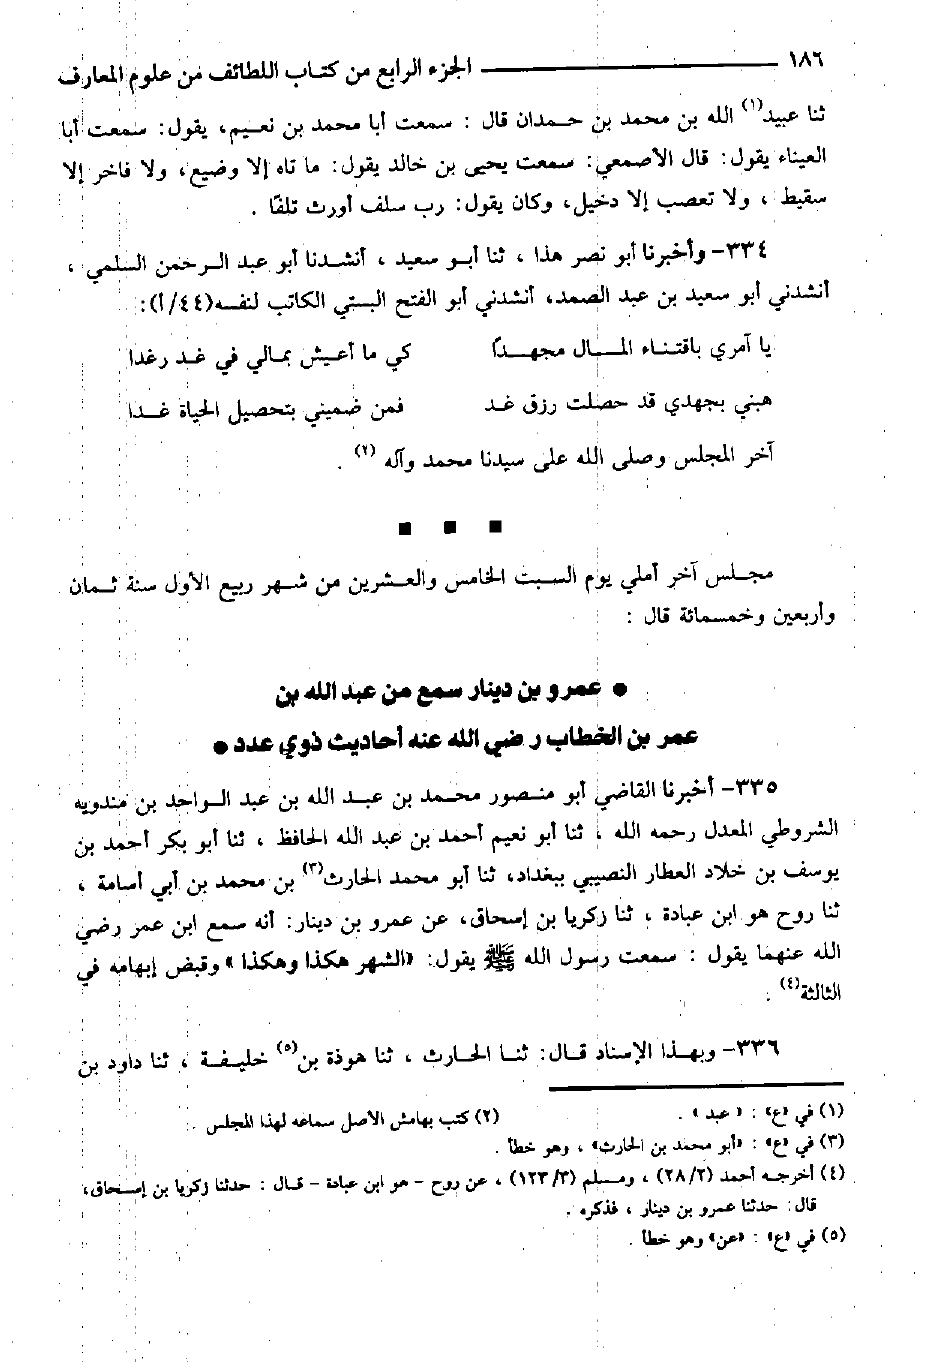 ١٨٦ الجزء الرابع من كتاب اللطائف من علوم المعارف
ثنا عبيد(١) الله بن محمد بن حمدان قال : سمعت أبا محمد بن نعيم، يقول: سمعت أبا
العيناء يقول: قال الأصمعي: سمعت يحيى بن خالد يقول: ما تاه إلا وضيع، ولا فاخر إلا
سقيط ، ولا تعصب إلا دخيل، وكان يقول: رب سلف أورث تلفًا .
٣٣٤- وأخبرنا أبو نصر هذا ، ثنا أبو سعيد ، أنشدنا أبو عبد الرحمن السلمي ،
أنشدني أبو سعيد بن عبد الصمد، أنشدني أبو الفتح البستي الكاتب لنفسه(٤٤/أ):
يا آمري باقتناء المال مجهدًا كي ما أعيش بمالي في غد رغدا
هبني بجهدي قد حصلت رزق غد فمن ضميني بتحصيل الحياة غدا
آخر المجلس وصلى الله على سيدنا محمد وآله (٢) .
مجلس آخر أملي يوم السبت الخامس والعشرين من شهر ربيع الأول سنة ثمان
وأربعين وخمسمائة قال :
● عمرو بن دينار سمع من عبد الله بن
عمر بن الخطاب رضي الله عنه أحاديث ذوي عدد ●
٣٣٥- أخبرنا القاضي أبو منصور محمد بن عبد الله بن عبد الواحد بن مندويه
الشروطي المعدل رحمه الله ، ثنا أبو نعيم أحمد بن عبد الله الحافظ ، ثنا أبو بكر أحمد بن
يوسف بن خلاد العطار النصيبي ببغداد، ثنا أبو محمد الحارث(٣) بن محمد بن أبي أسامة ،
ثنا روح هو ابن عبادة ، ثنا زكريا بن إسحاق، عن عمرو بن دينار: أنه سمع ابن عمر رضي
الله عنهما يقول : سمعت رسول الله ﷺ يقول: «الشهر هكذا وهكذا» وقبض إبهامه في
الثالثة(٤) .
٣٣٦- وبهذا الإسناد قال: ثنا الحارث ، ثنا هوذة بن(٥) خليفة ، ثنا داود بن
(١) في «ع» : « عبد » . (٢) كتب بهامش الأصل سماعه لهذا المجلس .
(٣) في «ع» : «أبو محمد بن الحارث» ، وهو خطأ .
(٤) أخرجه أحمد (٢٨/٢) ، ومسلم (١٢٣/٣) ، عن روح - هو ابن عبادة - قال : حدثنا زكريا بن إسحاق،
قال: حدثنا عمرو بن دينار ، فذكره .
(٥) في «ع» : «عن» وهو خطأ .